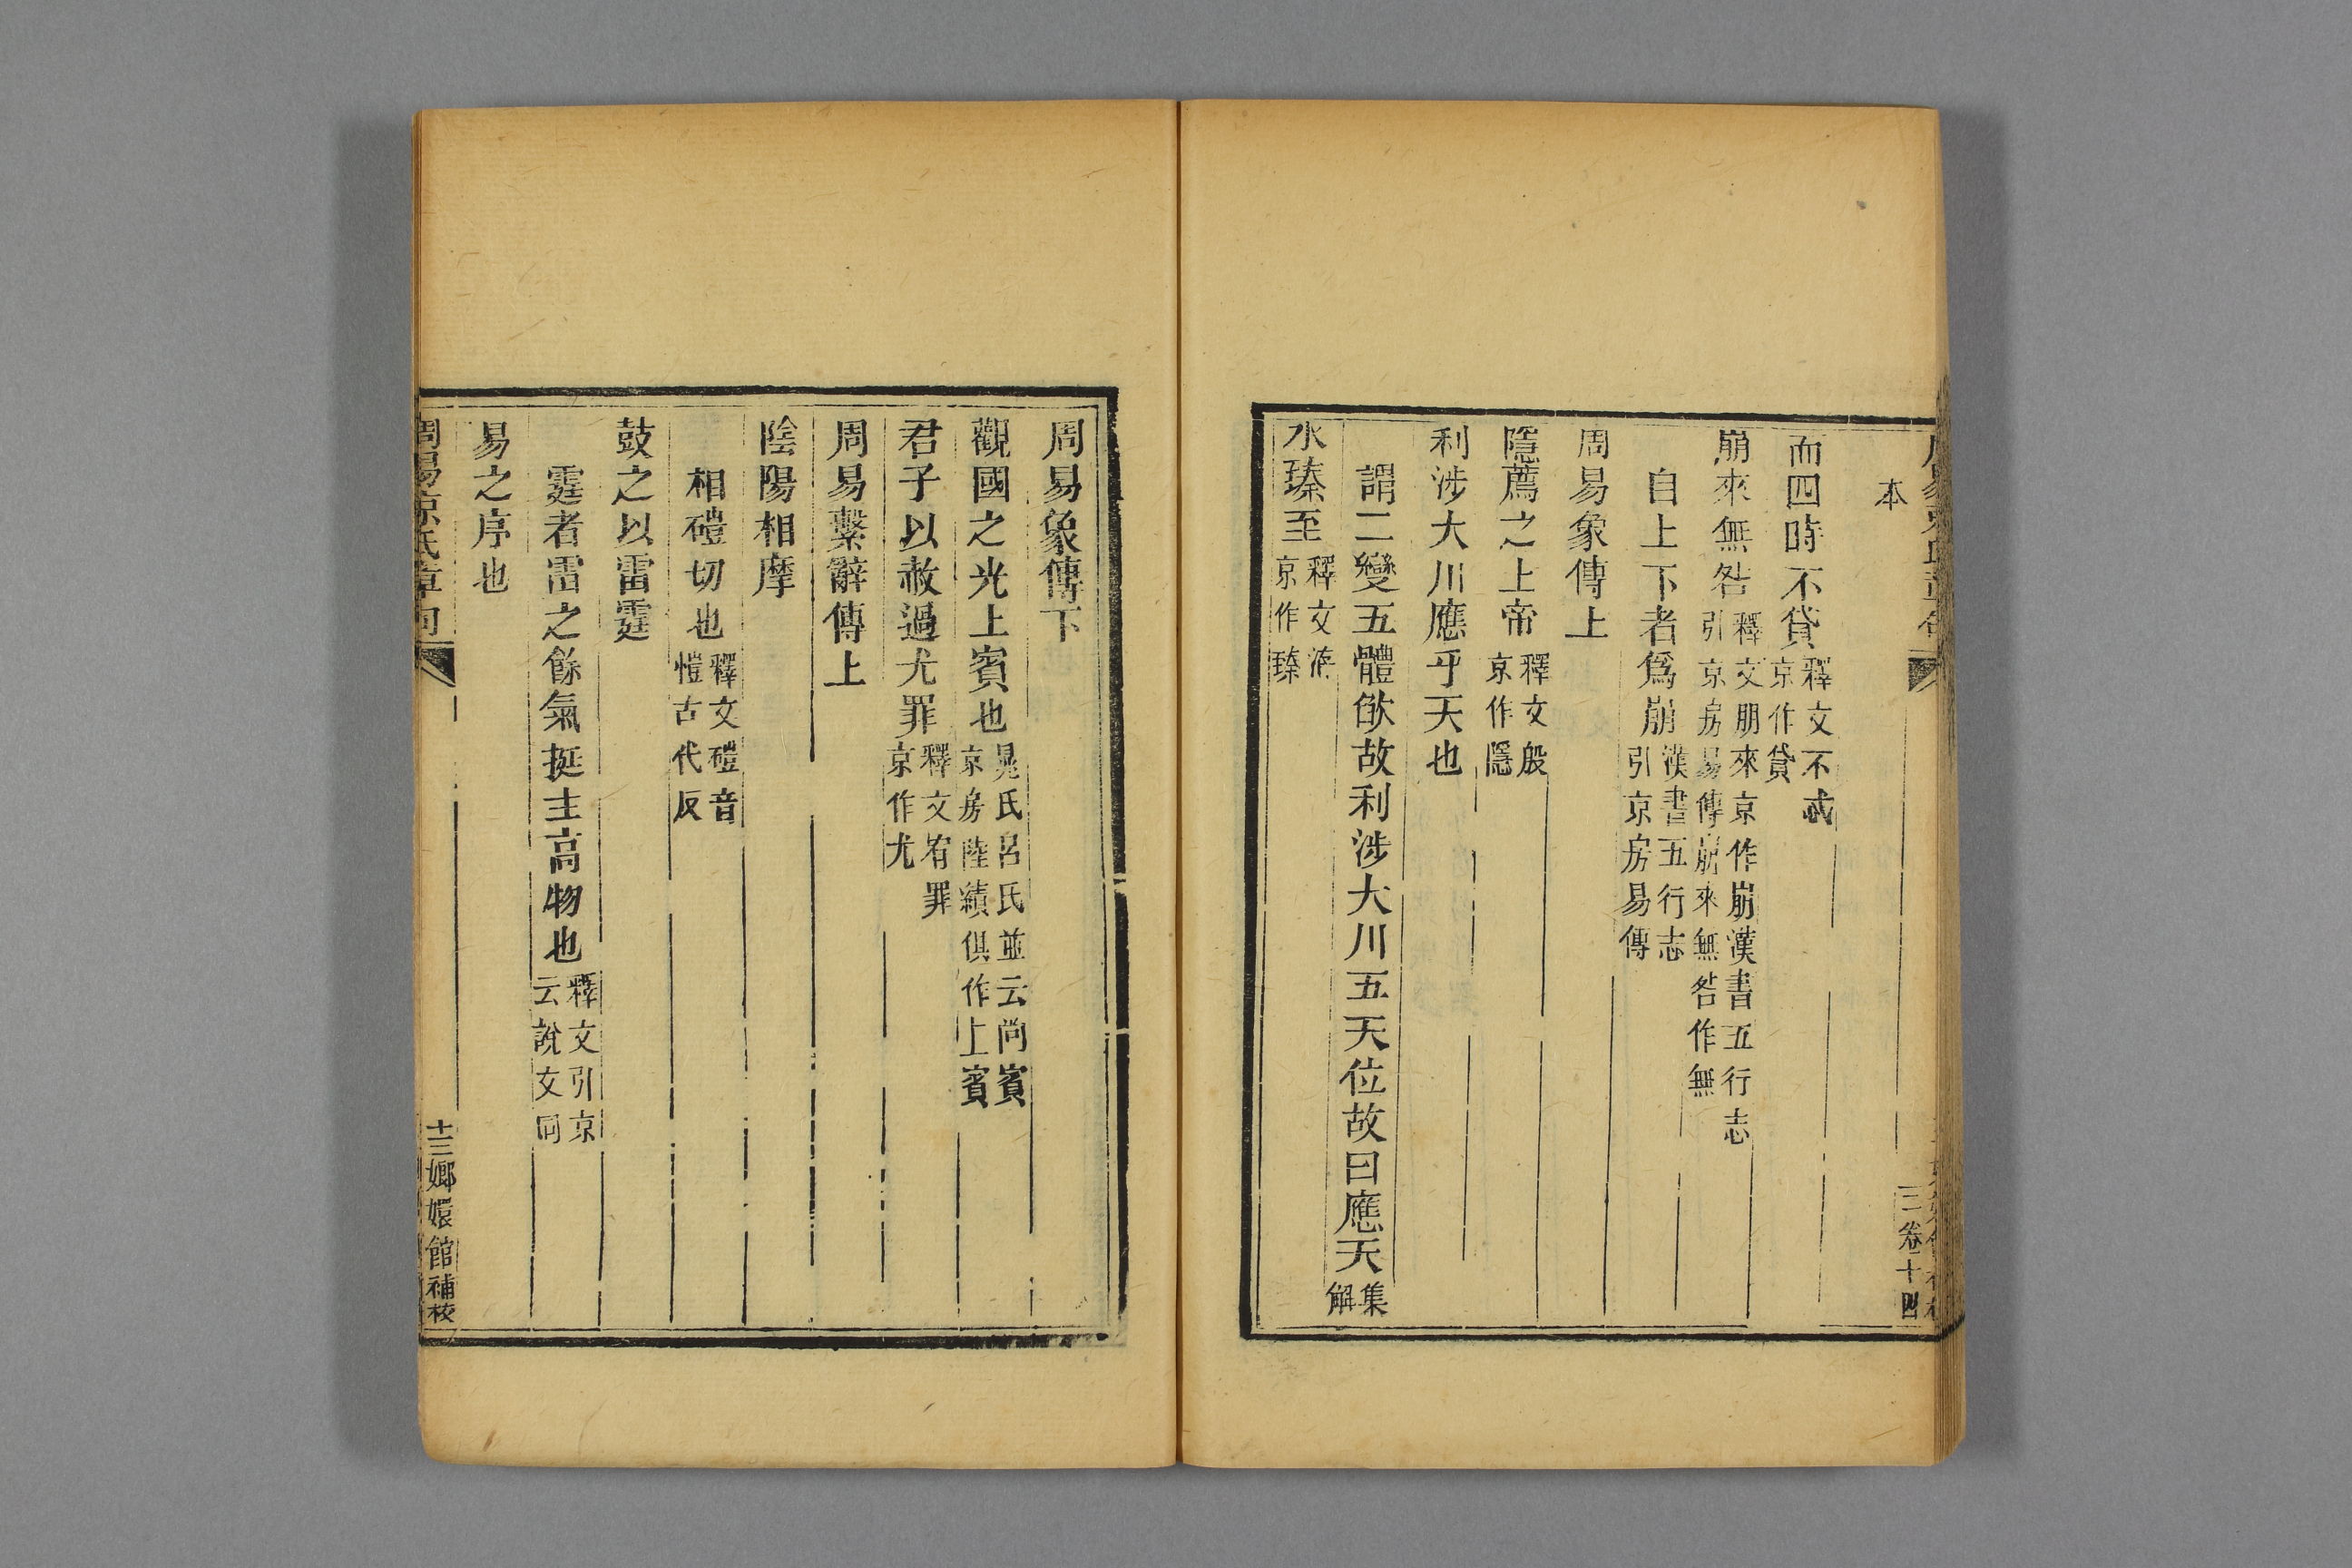 本
而四時不貸釋文不忒京作貸
崩來無咎釋文朋來京作崩漢書五行志引京房易傳崩來無咎作無
自上下者爲崩漢書五行志引京房易傳
周易象傳上
隱薦之上帝釋文殷京作隱
利涉大川應乎天也
謂二變五體故利涉大川五天位故曰應天集解
水臻至釋文洊京作臻
三卷十四
周易象傳下
觀國之光上賓也晁氏呂氏並云尚賓京房陸績俱作上賓
君子以赦過尤罪釋文宥罪京作尤
周易繫辭傳上
陰陽相摩
相磑切也釋文磑音愷古代反
鼓之以雷霆
霆者雷之餘氣挺生高物也釋文引京云說文同
易之序也
周易京氏章句
十三嫏嬛館補校